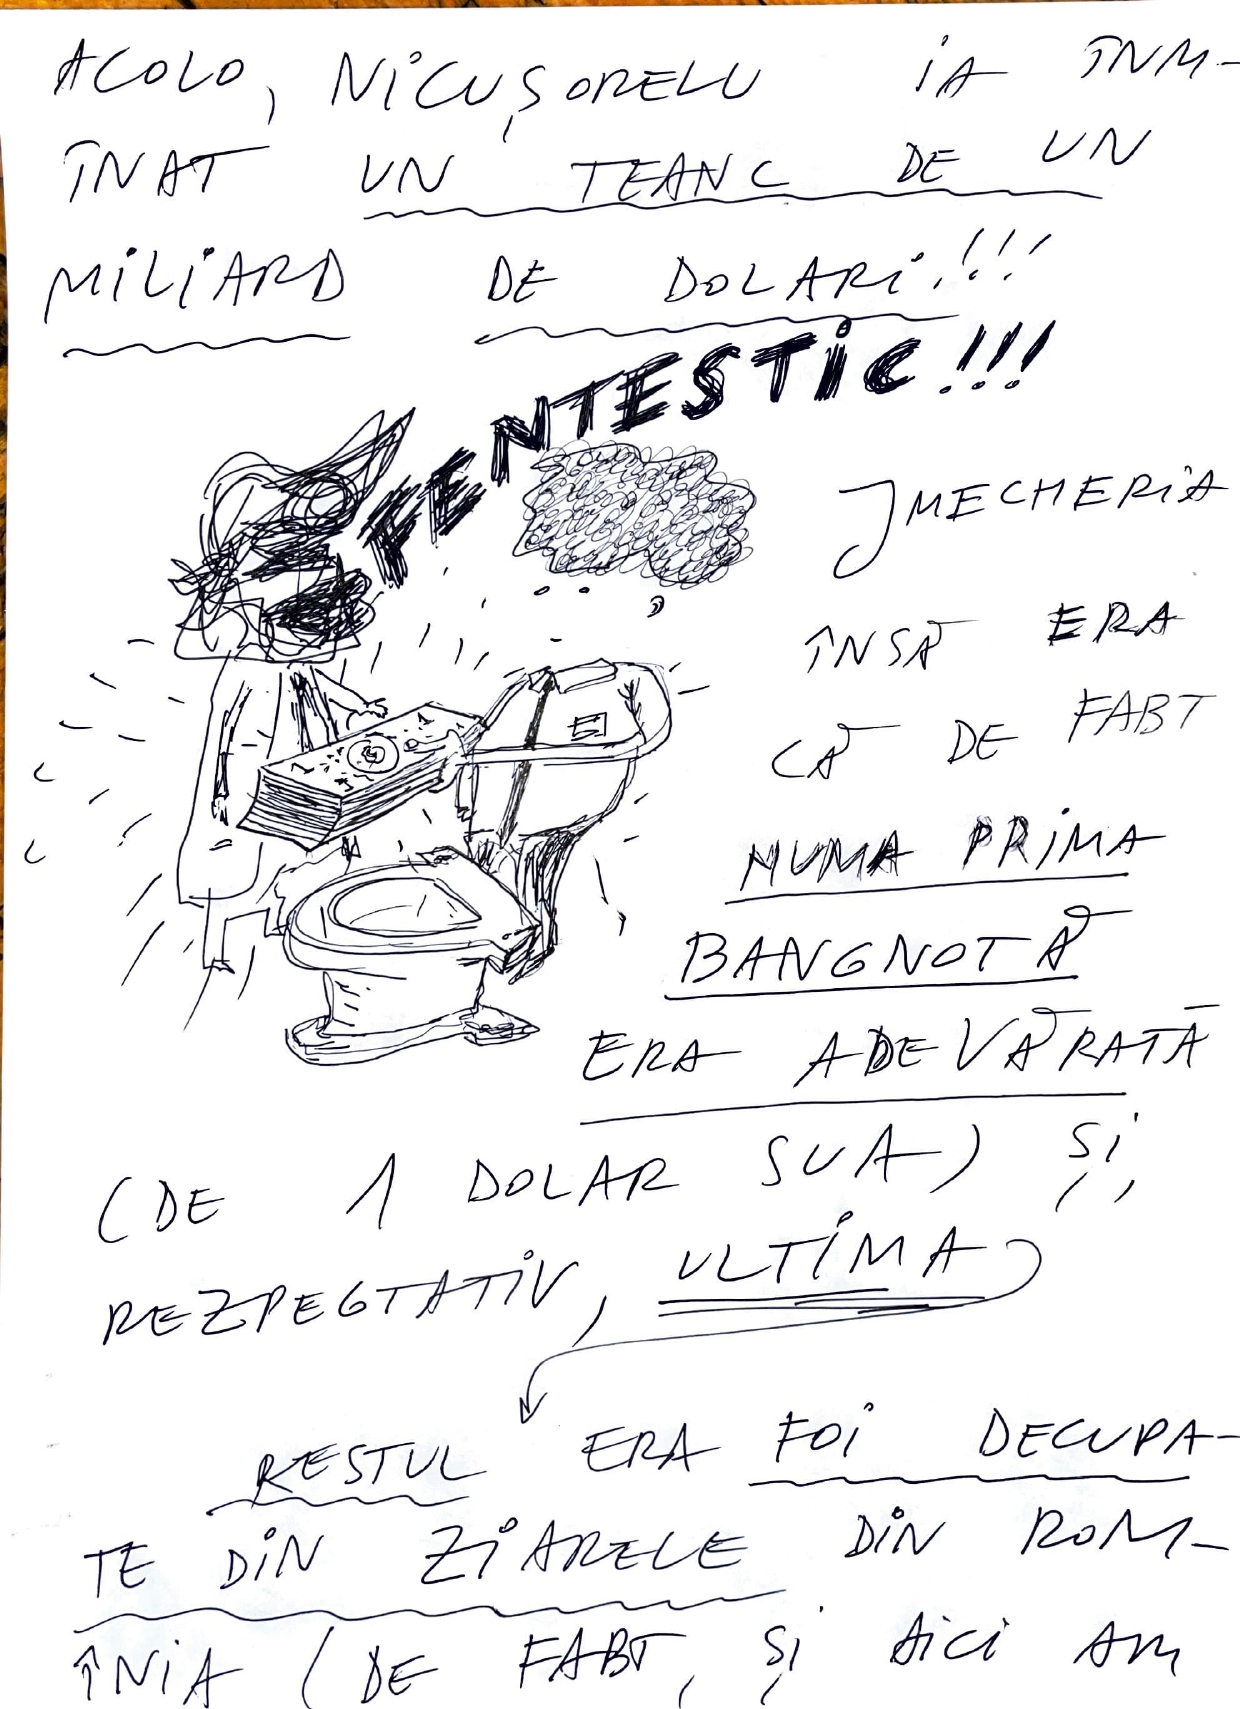 ACOLO, NICUȘORELU IA ÎNM-
ÎNAT UN TEANC DE UN
MILIARD DE DOLARI!!!
FENTESTIC!!!
JMECHERIA
ÎNSĂ ERA
CĂ DE FABT
NUMA PRIMA
BANGNOTĂ
ERA ADEVĂRATĂ
(DE 1 DOLAR SUA) ȘI,
REZPEGTATIV, ULTIMA
RESTUL ERA FOI DECUPA-
TE DIN ZIARELE DIN ROM-
ÎNIA (DE FABT, ȘI AICI AM